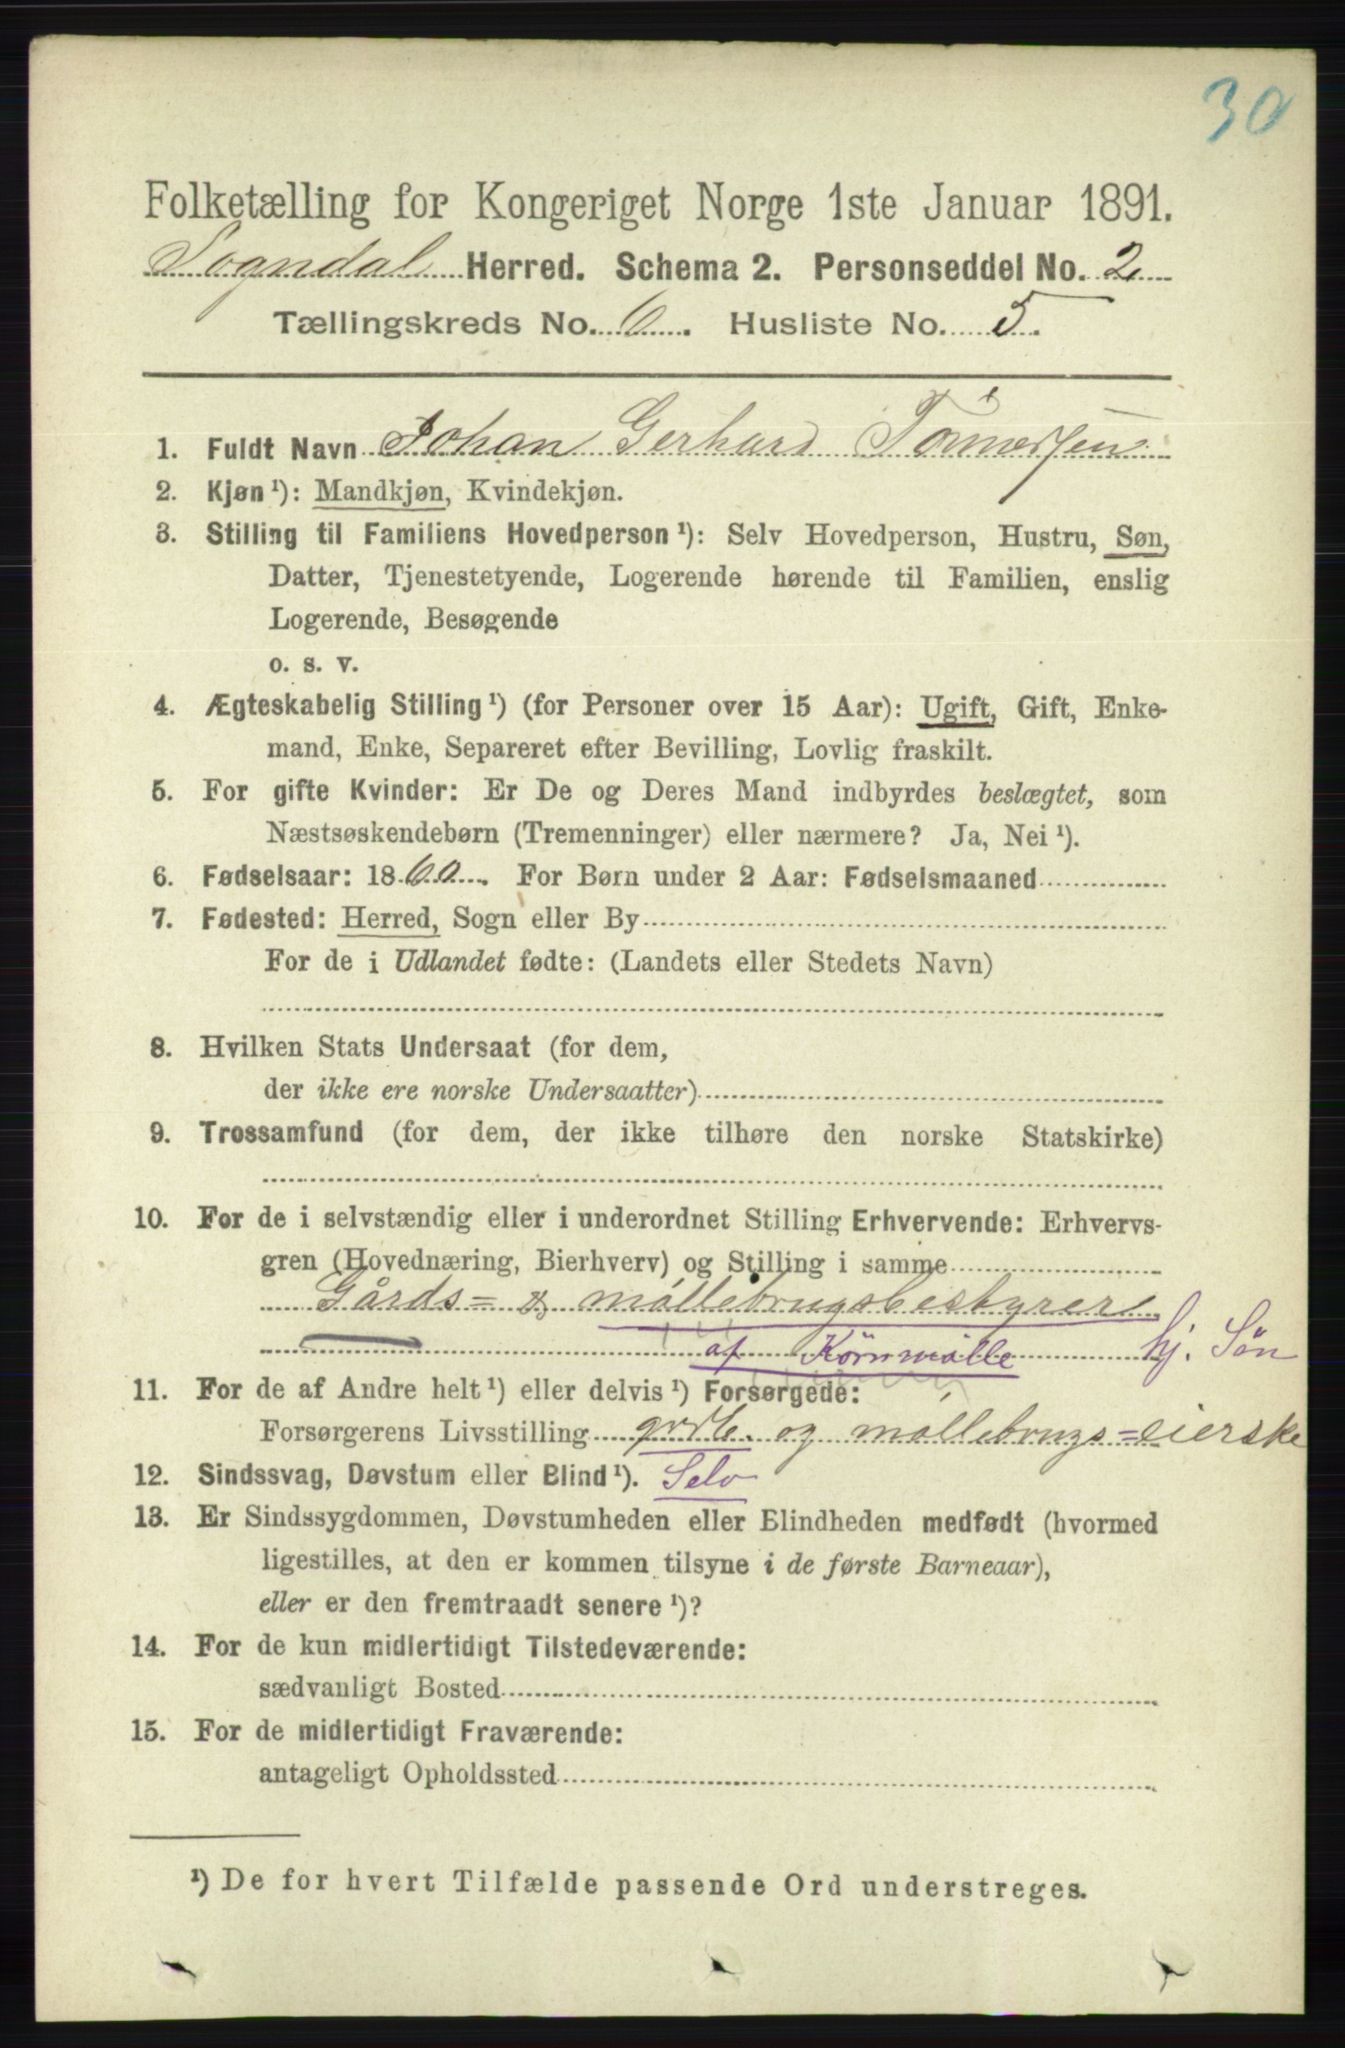 30
Folketælling for Kongeriget Norge 1ste Januar 1891.
Sogndal Herred. Schema 2. Personseddel No. 2
Tællingskreds No. 6. Husliste No. 5.
1. Fuldt Navn Johan Gerhard
2. Kjøn ¹): Mandkjøn, Kvindekjøn.
3. Stilling til Familiens Hovedperson ¹): Selv Hovedperson, Hustru, Søn,
Datter, Tjenestetyende, Logerende hørende til Familien, enslig
Logerende, Besøgende
o. s. v.
4. Ægteskabelig Stilling ¹) (for Personer over 15 Aar): Ugift, Gift, Enke-
mand, Enke, Separeret efter Bevilling, Lovlig fraskilt.
5. For gifte Kvinder: Er De og Deres Mand indbyrdes beslægtet, som
Næstsøskendebørn (Tremenninger) eller nærmere? Ja, Nei ¹).
6. Fødselsaar: 1860. For Børn under 2 Aar: Fødselsmaaned
7. Fødested: Herred, Sogn eller By
For de i Udlandet fødte: (Landets eller Stedets Navn)
8. Hvilken Stats Undersaat (for dem,
der ikke ere norske Undersaatter)
9. Trossamfund (for dem, der ikke tilhøre den norske Statskirke)
10. For de i selvstændig eller i underordnet Stilling Erhvervende: Erhvervs-
gren (Hovednæring, Bierhverv) og Stilling i samme
Gårds= & møllebrugsbestyrer
af Kornmølle hj. Søn
11. For de af Andre helt ¹) eller delvis ¹) Forsørgede:
Forsørgerens Livsstilling grdb. og møllebrugs=eierske
12. Sindssvag, Døvstum eller Blind ¹). Selv
13. Er Sindssygdommen, Døvstumheden eller Blindheden medfødt (hvormed
ligestilles, at den er kommen tilsyne i de første Barneaar),
eller er den fremtraadt senere ¹)?
14. For de kun midlertidigt Tilstedeværende:
sædvanligt Bosted
15. For de midlertidigt Fraværende:
antageligt Opholdssted
¹) De for hvert Tilfælde passende Ord understreges.